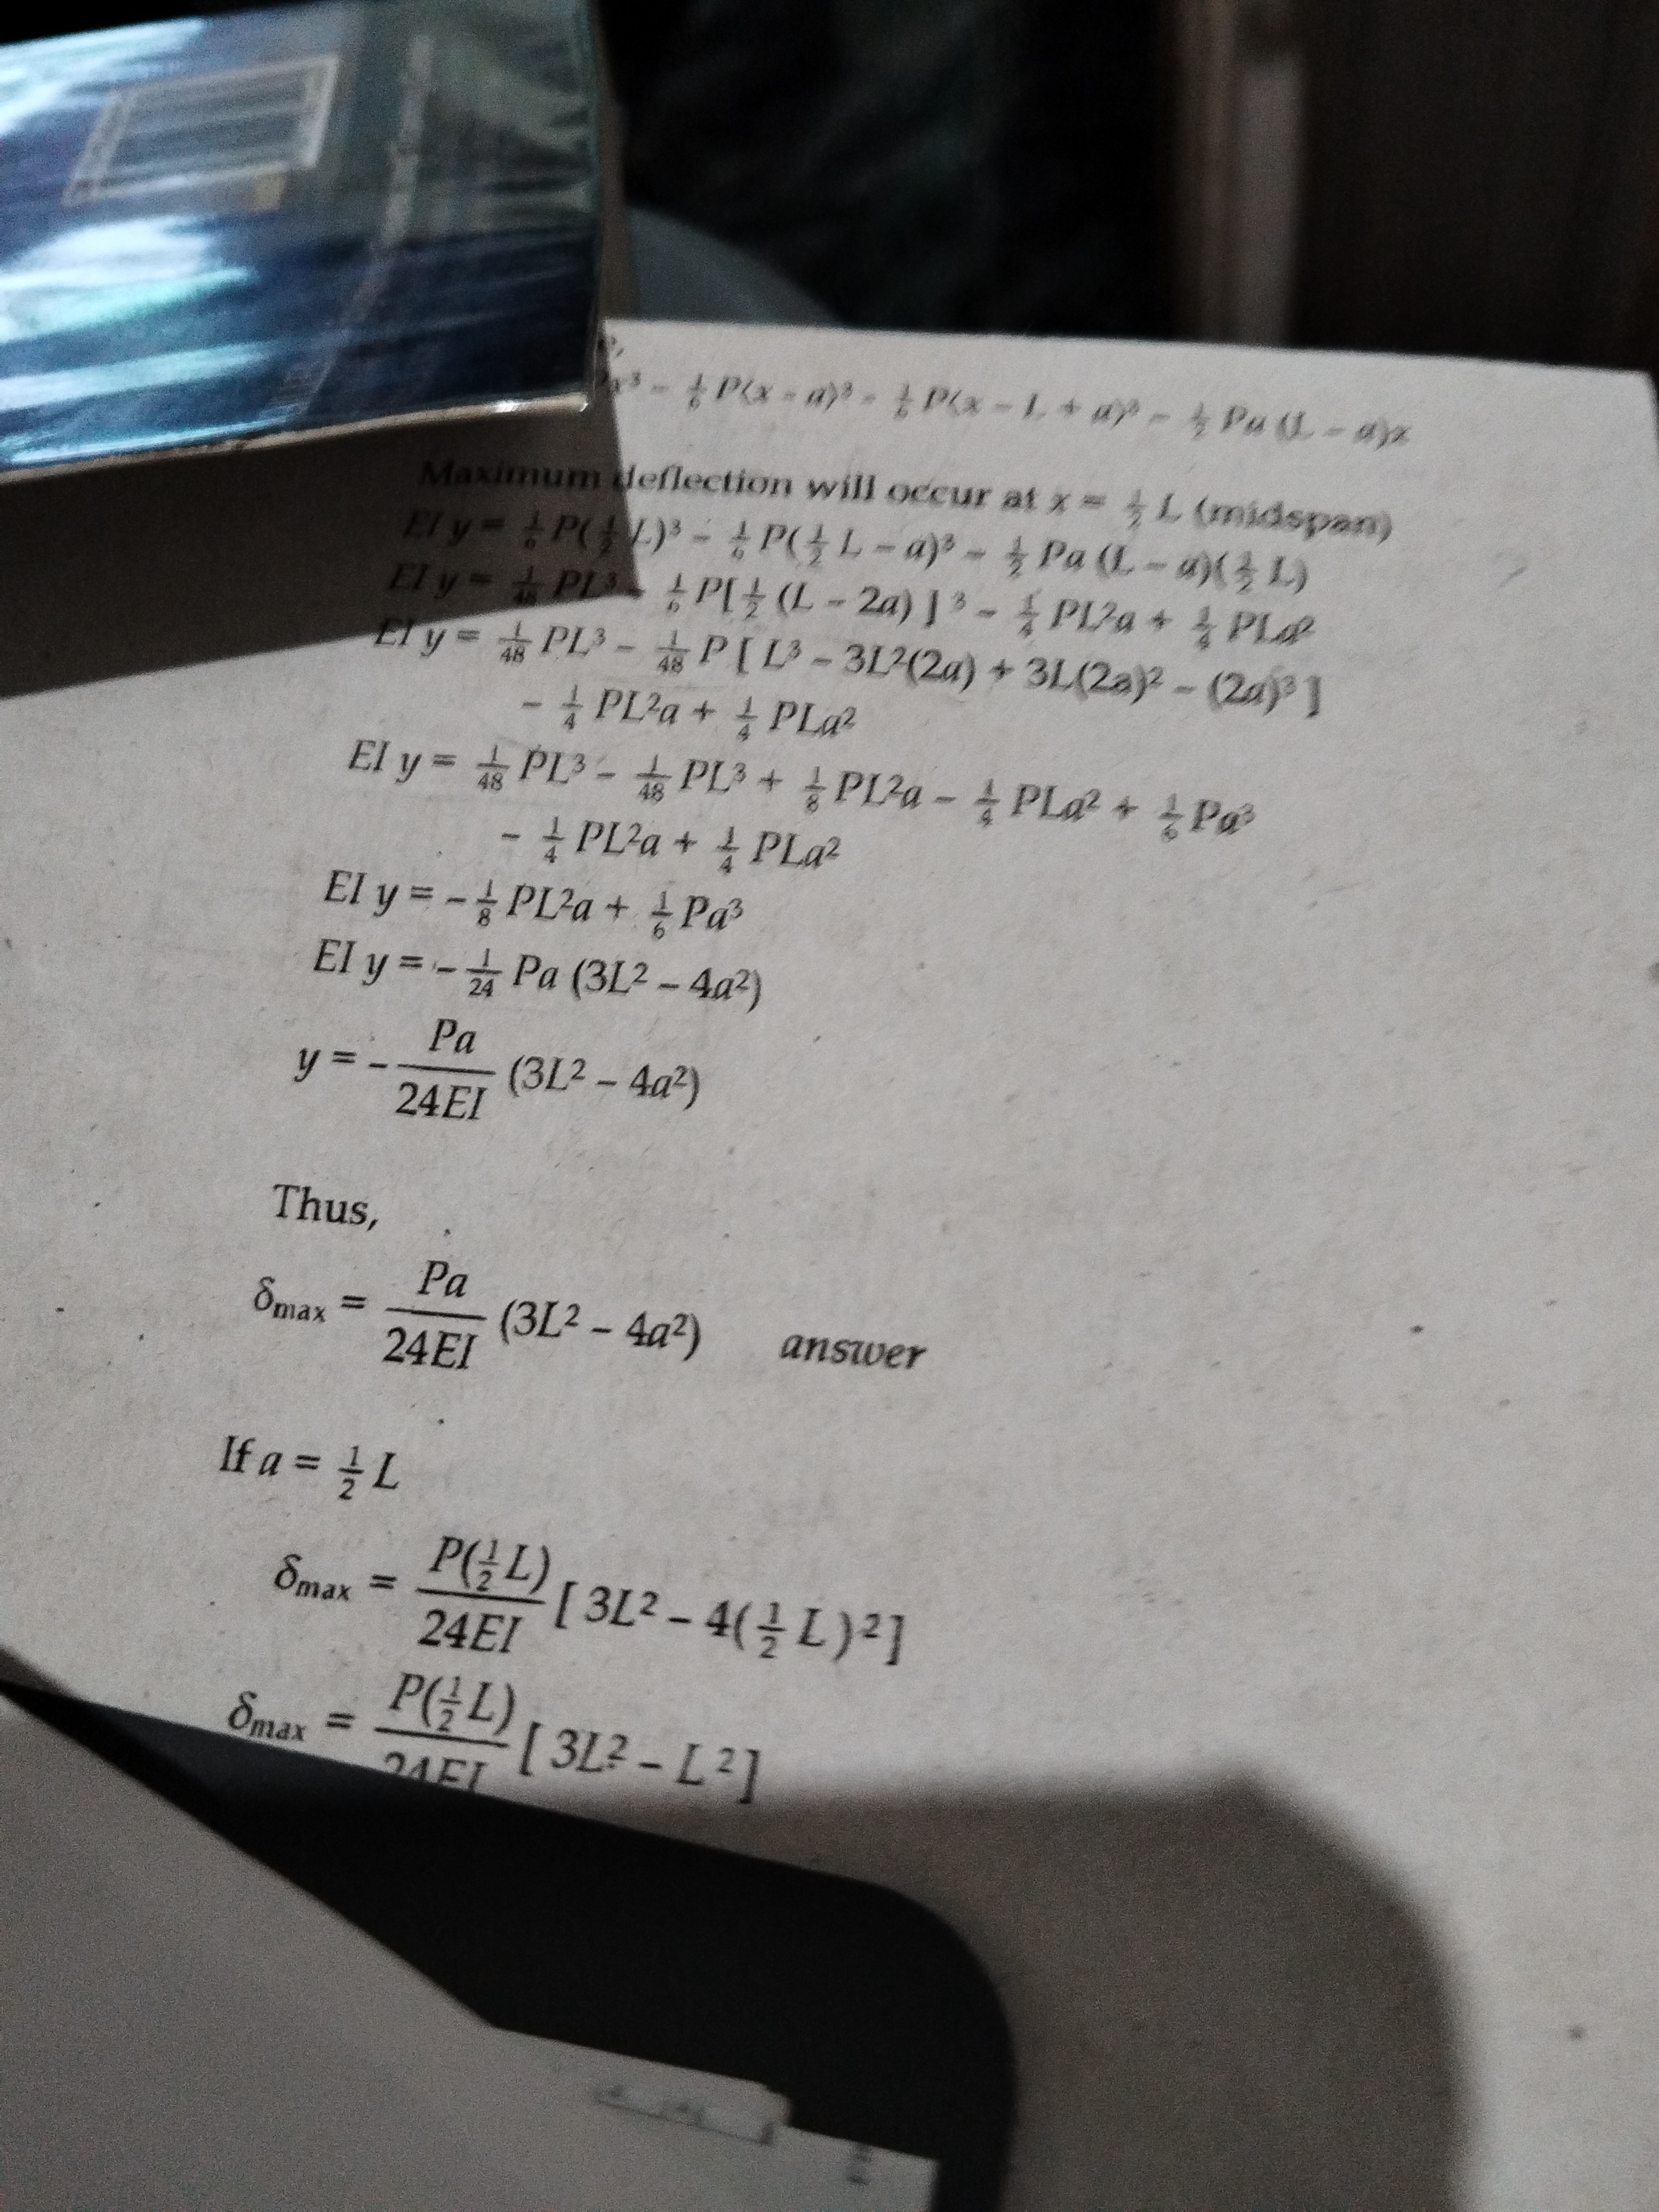 x³ – 1/6 P⟨x – a⟩³ – 1/6 P⟨x – L + a⟩³ – 1/2 Pa (L – a)x
Maximum deflection will occur at x = 1/2 L (midspan)
EI y = 1/6 P(1/2 L)³ – 1/6 P(1/2 L – a)³ – 1/2 Pa (L – a)(1/2 L)
EI y = 1/48 PL³ – 1/6 P[1/2 (L – 2a) ]³ – 1/4 PL²a + 1/4 PLa²
EI y = 1/48 PL³ – 1/48 P [ L³ – 3L²(2a) + 3L(2a)² – (2a)³ ]
– 1/4 PL²a + 1/4 PLa²
EI y = 1/48 PL³ – 1/48 PL³ + 1/8 PL²a – 1/4 PLa² + 1/6 Pa³
– 1/4 PL²a + 1/4 PLa²
EI y = – 1/8 PL²a + 1/6 Pa³
EI y = – 1/24 Pa (3L² – 4a²)
y = – Pa/24EI (3L² – 4a²)
Thus,
δmax = Pa/24EI (3L² – 4a²) answer
If a = 1/2 L
δmax = P(1/2 L)/24EI [ 3L² – 4(1/2 L)² ]
δmax = P(1/2 L)/24EI [ 3L² – L² ]